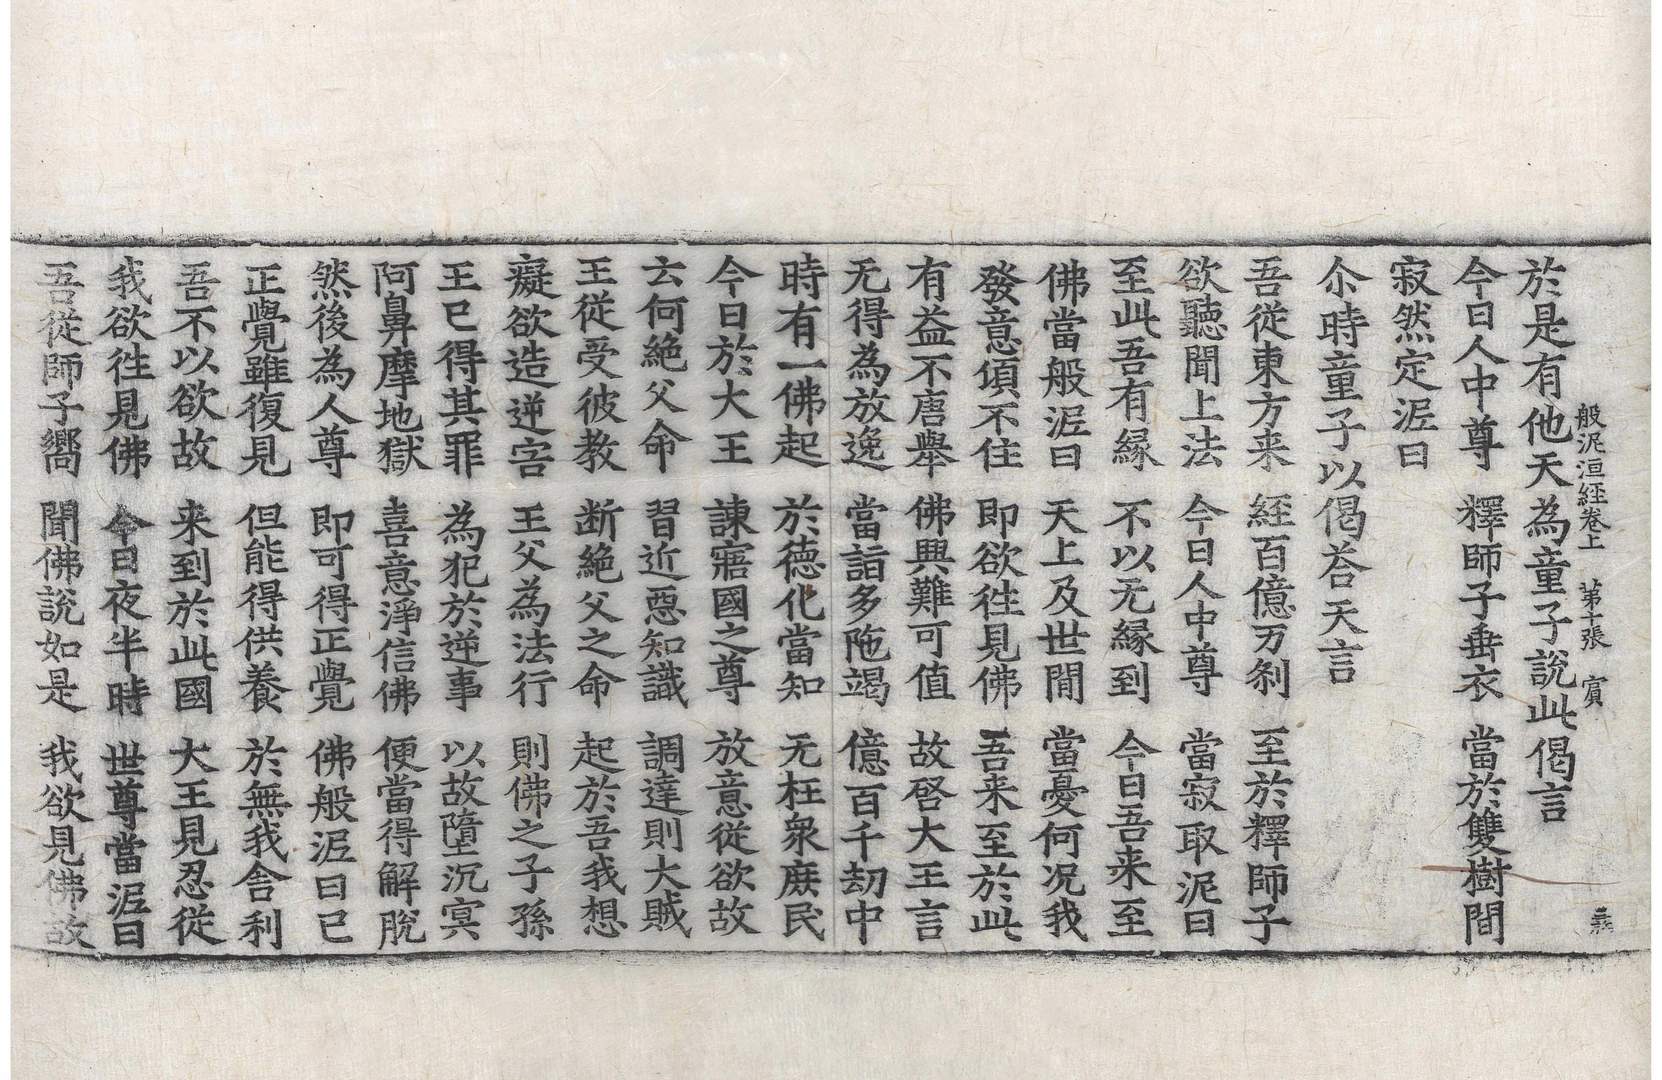 般泥洹経卷上 第十張 賔
於是有他天為童子說此偈言
今日人中尊 釋師子垂衣 當於雙樹間
寂然定泥曰
尒時童子以偈荅天言
吾從東方来 經百億万刹 至於釋師子
欲聽聞上法 今日人中尊 當寂取泥曰
至此吾有縁 不以无縁到 今日吾来至
佛當般泥曰 天上及世間 當憂何况我
發意傾不住 即欲徃見佛 吾来至於此
有益不唐舉 佛興難可值 故啓大王言
无得為放逸 當詣多陁竭 億百千劫中
時有一佛起 於德化當知 无枉衆庶民
今日於大王 諫寤國之尊 放意從欲故
云何絶父命 習近惡知識 調達則大賊
王從受彼教 断絶父之命 起於吾我想
癡欲造逆害 王父為法行 則佛之子孫
王已得其罪 為犯於逆事 以故墮沉冥
阿鼻摩地獄 喜意淨信佛 便當得解脫
然後為人尊 即可得正覺 佛般泥曰已
正覺雖復見 但能得供養 於無我舍利
吾不以欲故 来到於此國 大王見忍從
我欲徃見佛 今日夜半時 世尊當泥曰
吾從師子嚮 聞佛說如是 我欲見佛故